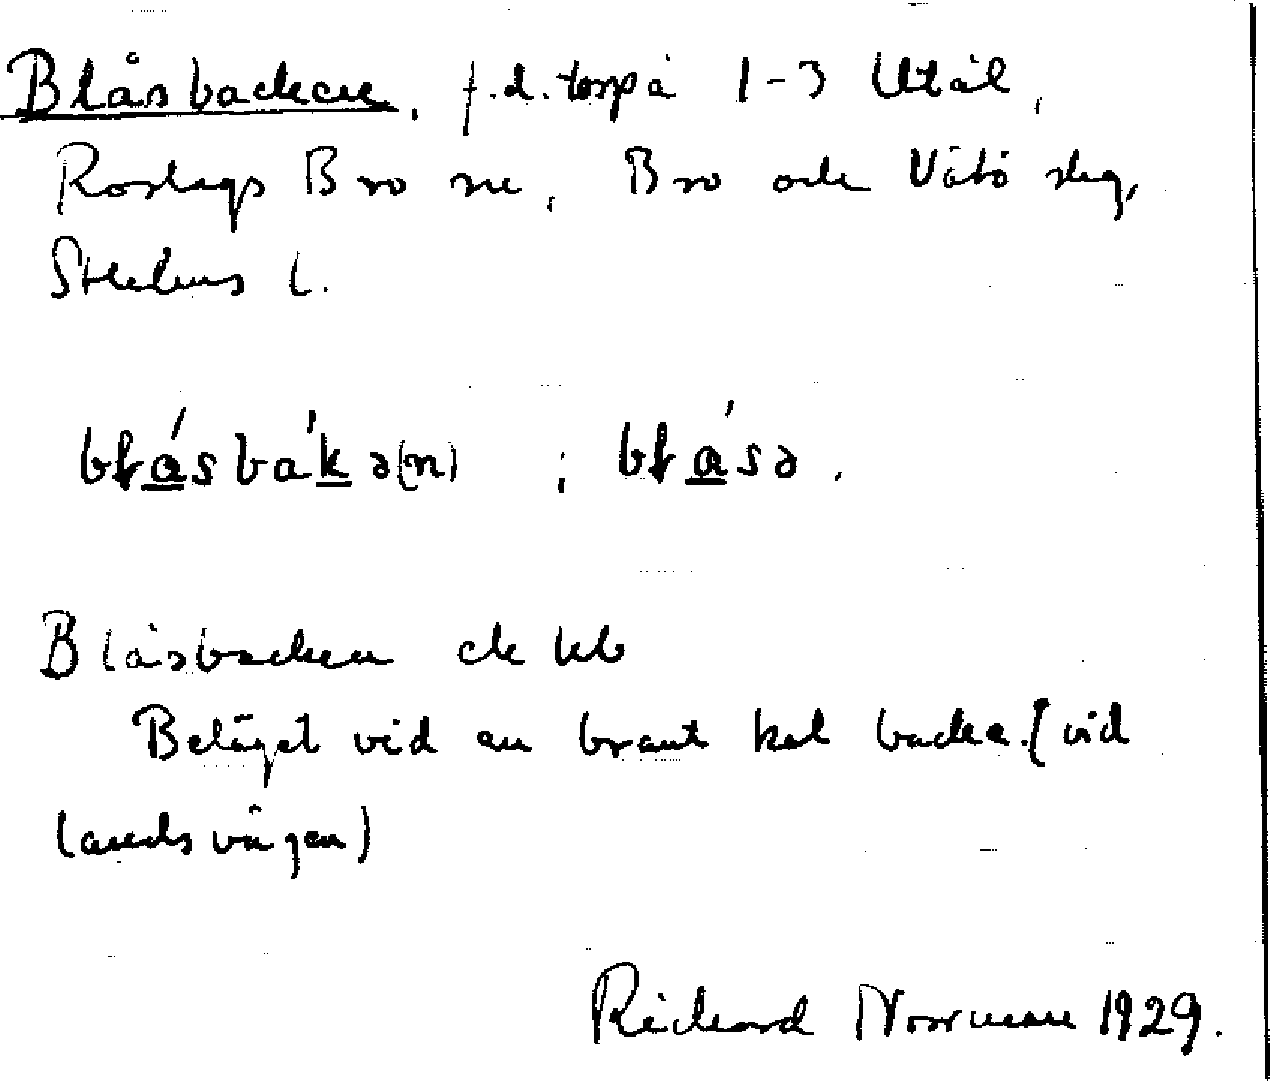 Blåsbacken, f.d. torp å 1-3 Utål,
Roslags Bro sn, Bro och Vätö skg,
Sthlms l.
bɫásbàkə(n) ; bɫásə.
Blåsbacken ek kb
Beläget vid en brant kal backe. (vid
landsvägen)
Richard Norrman 1929.